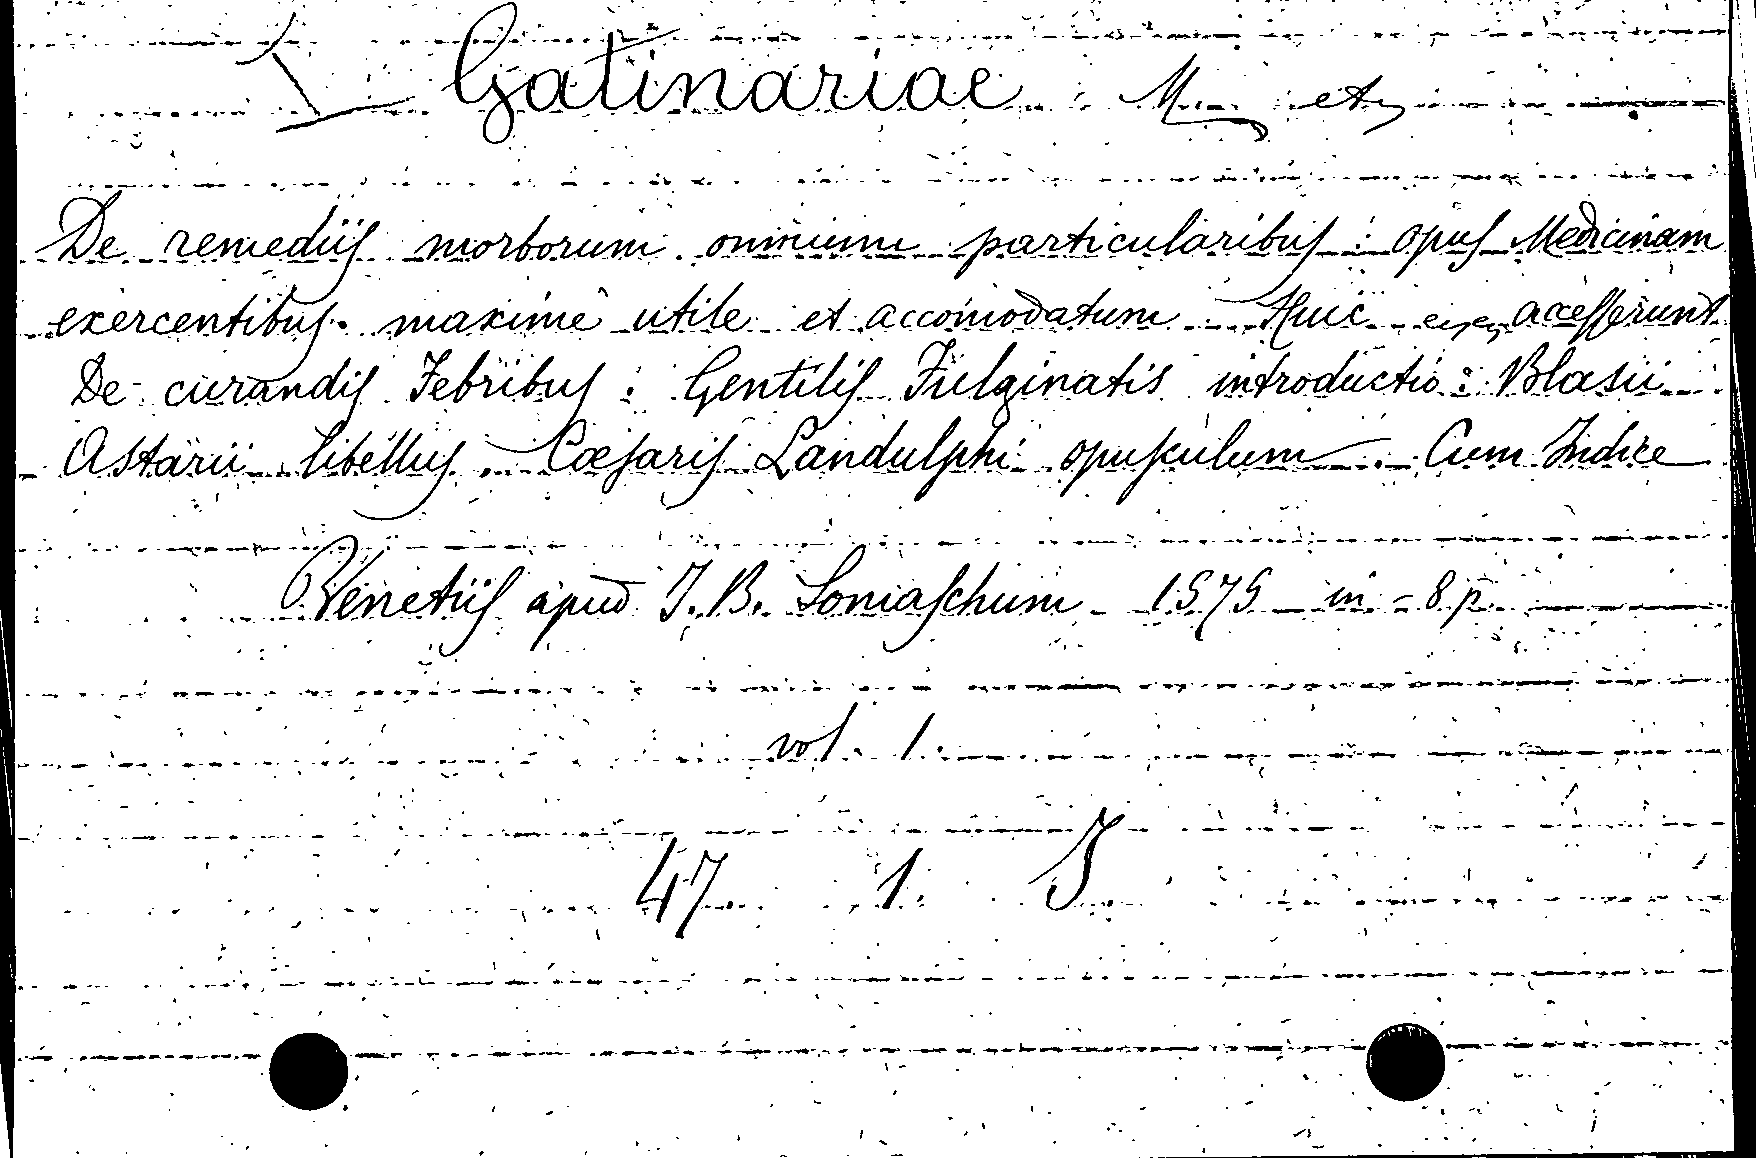 Gatinariae M et
De remediis morborum omnium particularibus : opus Medicinam
exercentibus maximè utile et accomodatum . Huic accesserunt
De curandis Febribus : Gentilis Fulginatis introductio : Blasii
Astarii libellus . Cæsaris Landulphi opusculum . Cum Indice
Venetiis apud J. B. Somaschum - 1575 - in - 8 p.
vol. 1.
47 1. J